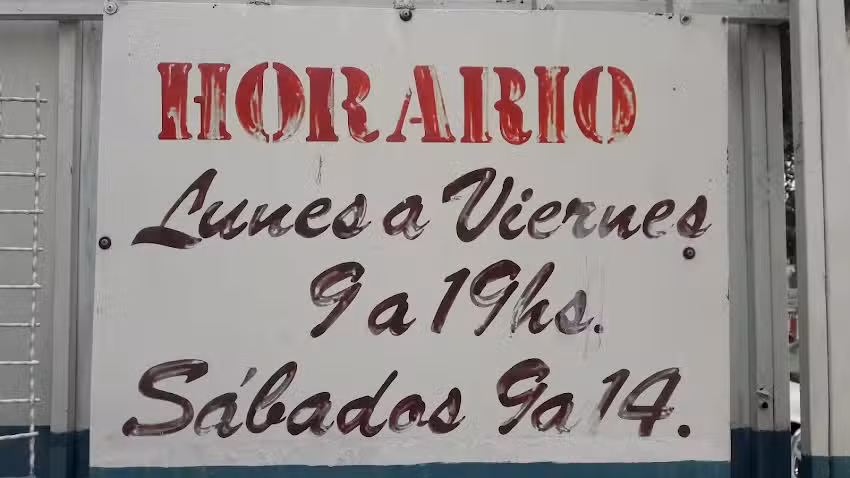 HORARIO
Lunes a Viernes
9 a 19hs.
Sábados 9a 14.